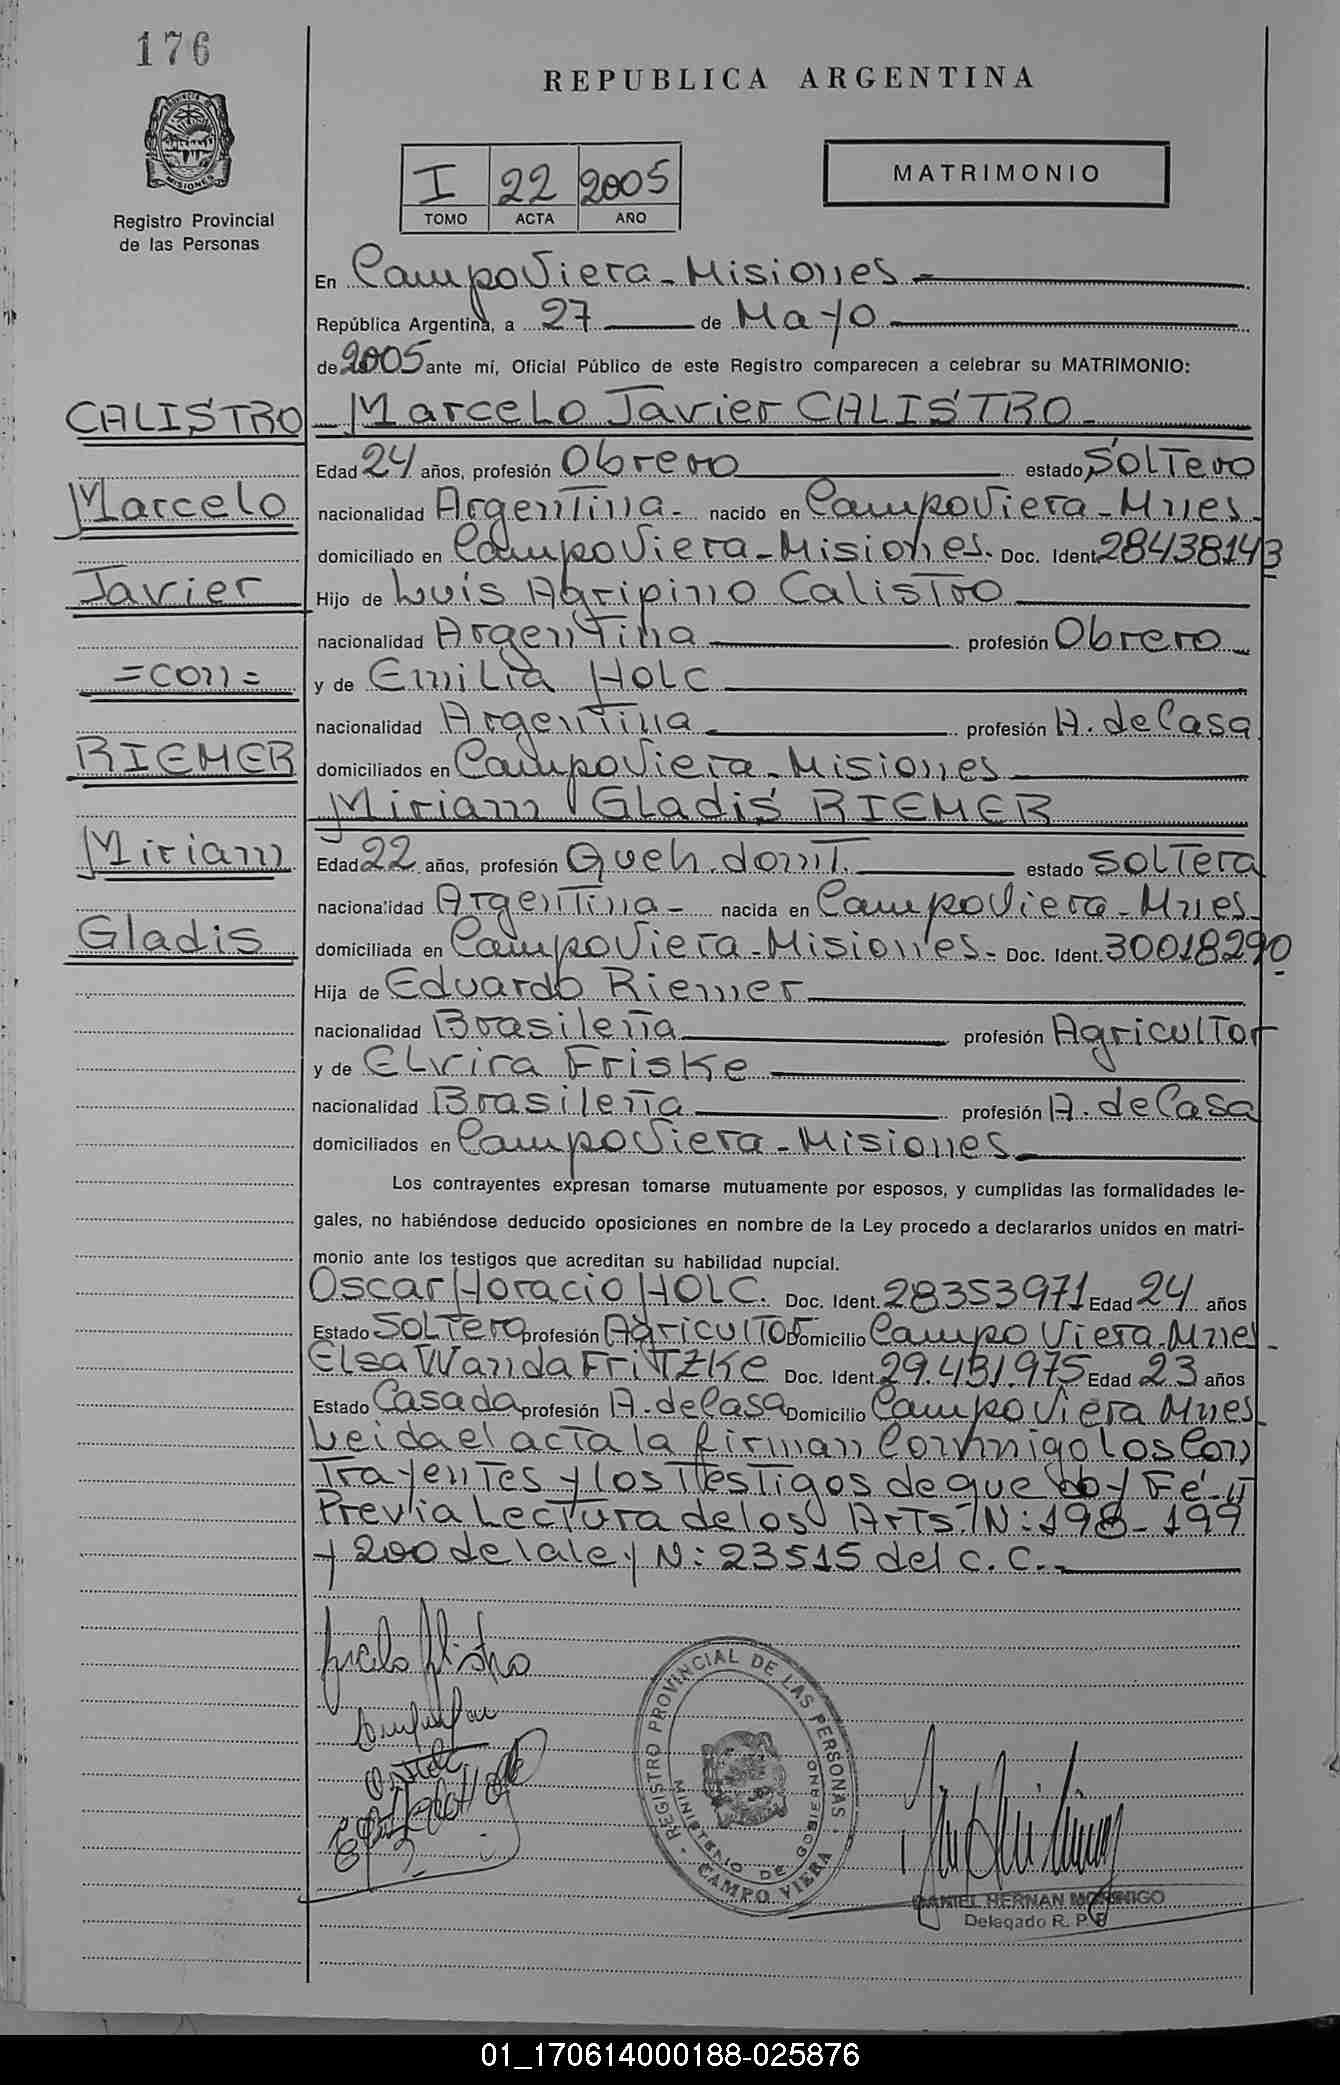 176
REPUBLICA ARGENTINA
PROVINCIA DE
MISIONES
Registro Provincial
de las Personas
I 22 2005
TOMO ACTA AÑO
MATRIMONIO
En Campo Viera - Misiones -
República Argentina, a 27 de Mayo
de 2005 ante mí, Oficial Público de este Registro comparecen a celebrar su MATRIMONIO:
CALISTRO
Marcelo
Javier
=con=
RIEMER
Miriam
Gladis
Marcelo Javier CALISTRO
Edad 24 años, profesión Obrero estado SolTero
nacionalidad ArgenTina - nacido en Campo Viera - Mnes.
domiciliado en Campo Viera - Misiones. Doc. Ident. 28438143
Hijo de Luis Agripino CalisTro
nacionalidad ArgenTina profesión Obrero
y de Emilia HOLC
nacionalidad ArgenTina profesión A. de Casa
domiciliados en Campo Viera - Misiones
Miriam Gladis RIEMER
Edad 22 años, profesión Queh. domT. estado SolTera
nacionalidad ArgenTina - nacida en Campo Viera - Mnes.
domiciliada en Campo Viera - Misiones - Doc. Ident. 30018290
Hija de Eduardo Riemer
nacionalidad Brasileña profesión AgriculTor
y de Elvira Friske
nacionalidad Brasileña profesión A. de Casa
domiciliados en Campo Viera - Misiones
Los contrayentes expresan tomarse mutuamente por esposos, y cumplidas las formalidades le-
gales, no habiéndose deducido oposiciones en nombre de la Ley procedo a declararlos unidos en matri-
monio ante los testigos que acreditan su habilidad nupcial.
Oscar Horacio HOLC. Doc. Ident. 28353971 Edad 24 años
Estado SolTero profesión AgriculTor Domicilio Campo Viera. Mnes -
Elsa Wanda FriTzKe Doc. Ident. 29.431.975 Edad 23 años
Estado Casada profesión A. de Casa Domicilio Campo Viera Mnes
Leida el acTa la firman Conmigo los Con
TrayenTes y los TesTigos de que doy Fé -
Previa LecTura de los ArTs. N: 198 - 199
y 200 de la ley N: 23515 del C. C. -
REGISTRO PROVINCIAL DE LAS PERSONAS
MINISTERIO DE GOBIERNO
CAMPO VIERA
DANIEL HERNAN MORINIGO
Delegado R. P. P.
01_170614000188-025876